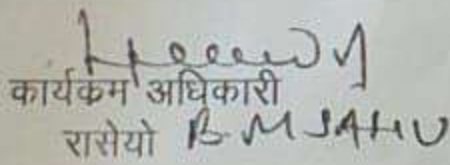 कार्यकम अधिकारी
रासेयो B M SAHU